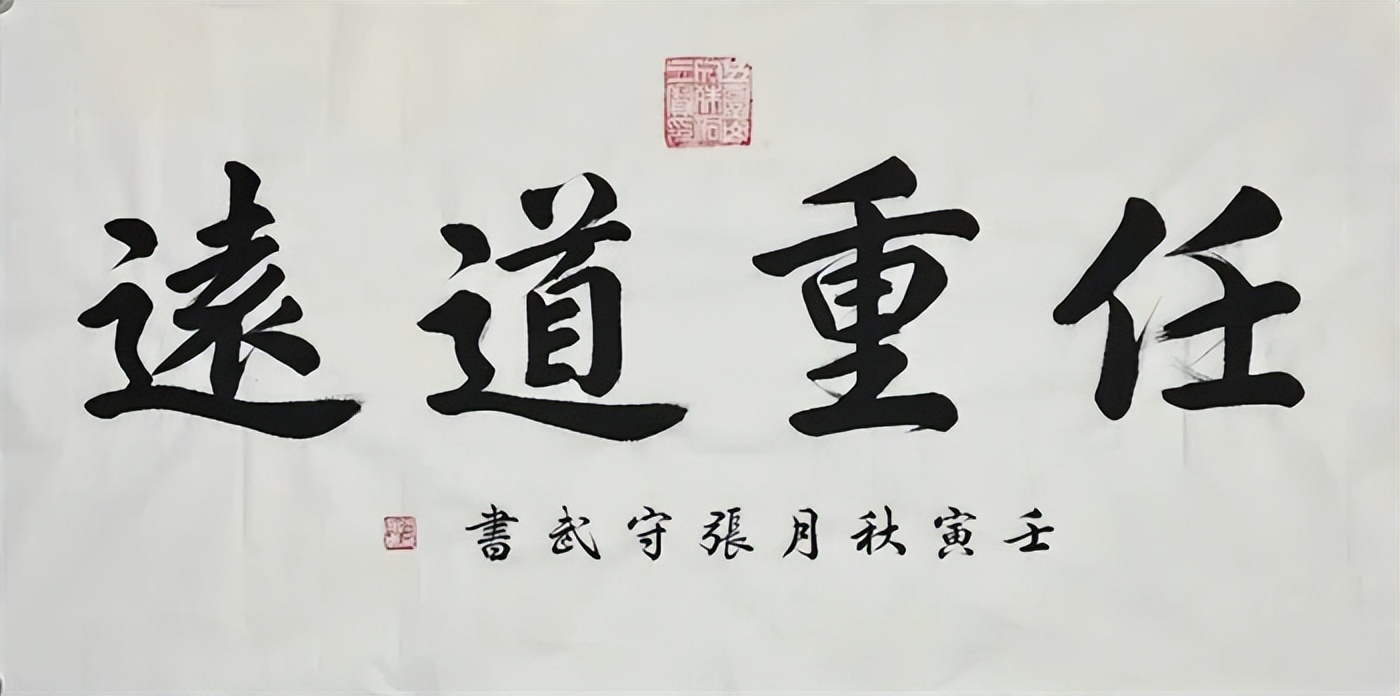 任重道遠
壬寅秋月張守武書